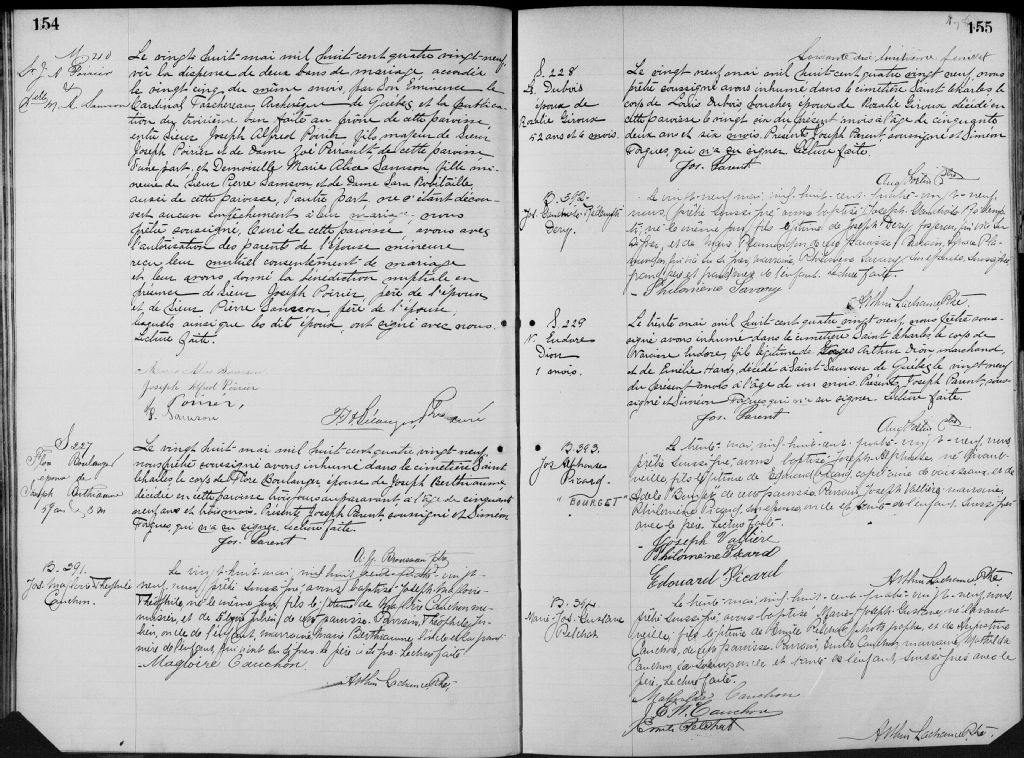 154
M 210
Sr J. A Poirier
&
Delle M. A. Samson
Le vingt huit mai mil huit cent quatre vingt neuf,
vû la dispense de deux bans de mariage accordée
le vingt cinq du même mois, par Son Eminence le
Cardinal Taschereau, Archevêque de Québec et la publica-
tion du troisième ban faite au prône de cette paroisse,
entre Sieur Joseph Alfred Poirier fils majeur de Sieur
Joseph Poirier et de Dame Zoé Perrault, de cette paroisse,
d'une part, et Demoiselle Marie Alice Samson, fille mi-
neure de Sieur Pierre Samson et de Dame Sara Robitaille
aussi de cette paroisse, d'autre part, ne s'étant décou-
vert aucun empêchement à leur mariage, nous
prêtre soussigné, Curé de cette paroisse, avons avec
l'autorisation des parents de l'épouse mineure
reçu leur mutuel consentement de mariage
et leur avons donné la bénédiction nuptiale en
présence de Sieur Joseph Poirier père de l'époux
et de Sieur Pierre Samson, père de l'épouse,
lesquels ainsi que les dits époux, ont signé avec nous.
Lecture faite.
Marie Alice Samson
Joseph Alfred Poirier
Poirier,
P. Samson
F. H. Bélanger Ptre curé
S 227
Flore Boulanger
épouse de
Joseph Berthiaume
59 ans 3 m
Le vingt huit mai mil huit cent quatre vingt neuf,
nous prêtre soussigné avons inhumé dans le cimetière Saint
Charles le corps de Flore Boulanger, épouse de Joseph Berthiaume,
décédée en cette paroisse trois jours auparavant à l'âge de cinquante
neuf ans et trois mois. Présents Joseph Parent, soussigné et Siméon
Fargues, qui n'a su signer. Lecture faite.
Jos. Parent
A. G. Brousseau Ptre
B. 291.
Jos. Magloire Théophile
Cauchon.
Le vingt-huit-mai, mil huit cent-quatre-vingt-
neuf, nous, prêtre soussigné, avons baptisé Joseph Magloire
Théophile, né le même jour, fils légitime de Magloire Cauchon, me-
nuisier, et de Julien de cette paroisse. Parrain, Théophile Ju-
lien, oncle de l'enfant, marraine, Marie Berthiaume,
mère de l'enfant, qui n'ont su signer. Le père a signé. Lecture faite
Magloire Cauchon
Arthur Lachance Ptre,
155
Soixante dix huitième feuillet
S. 228
Ls Dubois
époux de
Rosalie Giroux
52 ans et 6 mois.
Le vingt neuf mai mil huit cent quatre vingt neuf, nous
prêtre soussigné avons inhumé dans le cimetière Saint Charles le
corps de Louis Dubois boucher, époux de Rosalie Giroux décédé en
cette paroisse le vingt six du présent mois à l'âge de cinquante
deux ans et six mois. Présents, Joseph Parent soussigné et Siméon
Fargues, qui n'a su signer. Lecture faite.
Jos. Parent
B. 392.
Dery.
Le vingt-neuf mai, mil-huit-cent-quatre-vingt-neuf,
nous, prêtre soussigné, avons baptisé Joseph
né le même jour, fils légitime de Joseph Dery,
de cette paroisse. Parrain,
marraine, Philomène Savary
de l'enfant. Lecture faite.
Philomène Savary
Arthur Lachance Ptre.
S. 229
N. Eudore
Dion
1 mois.
Le trente mai mil huit cent quatre vingt neuf, nous prêtre sous-
signé avons inhumé dans le cimetière Saint Charles le corps de
Narcisse Eudore, fils légitime de Arthur Dion, marchand,
et de Emélie Hardy, décédé à Saint-Sauveur de Québec le vingt neuf
du présent mois à l'âge de un mois. Présents, Joseph Parent, sous-
signé et Siméon Fargues, qui n'a su signer. Lecture faite.
Jos. Parent
B. 393.
Jos Alphonse
Picard.
" BOURGET "
Le trente-mai, mil-huit-cent-quatre-vingt-neuf, nous,
prêtre soussigné, avons baptisé Joseph-Alphonse, né l'avant-
veille, fils légitime de Picard, et de
Adèle Bourget de cette paroisse. Parrain, Joseph Vallière, marraine,
Philomène Picard, son épouse, oncle et tante de l'enfant, soussignés
avec le père. Lecture faite.
Joseph Vallière
Philomène Picard
Edouard Picard
Arthur Lachance Ptre.
B. 394
Marie-Jos. Gustave
Belchat
Le trente-mai, mil-huit-cent-quatre-vingt-neuf, nous,
prêtre soussigné, avons baptisé Marie-Joseph-Gustave, né l'avant-
veille, fils légitime de Emile Belchat photographe, et de
Cauchon, de cette paroisse. Parrain, Cauchon, marraine, Mathilda
Cauchon, oncle et tante de l'enfant, soussignés avec le
père. Lecture faite.
Mathilda Cauchon
J. E. N. Cauchon
Emile Belchat
Arthur Lachance Ptre.